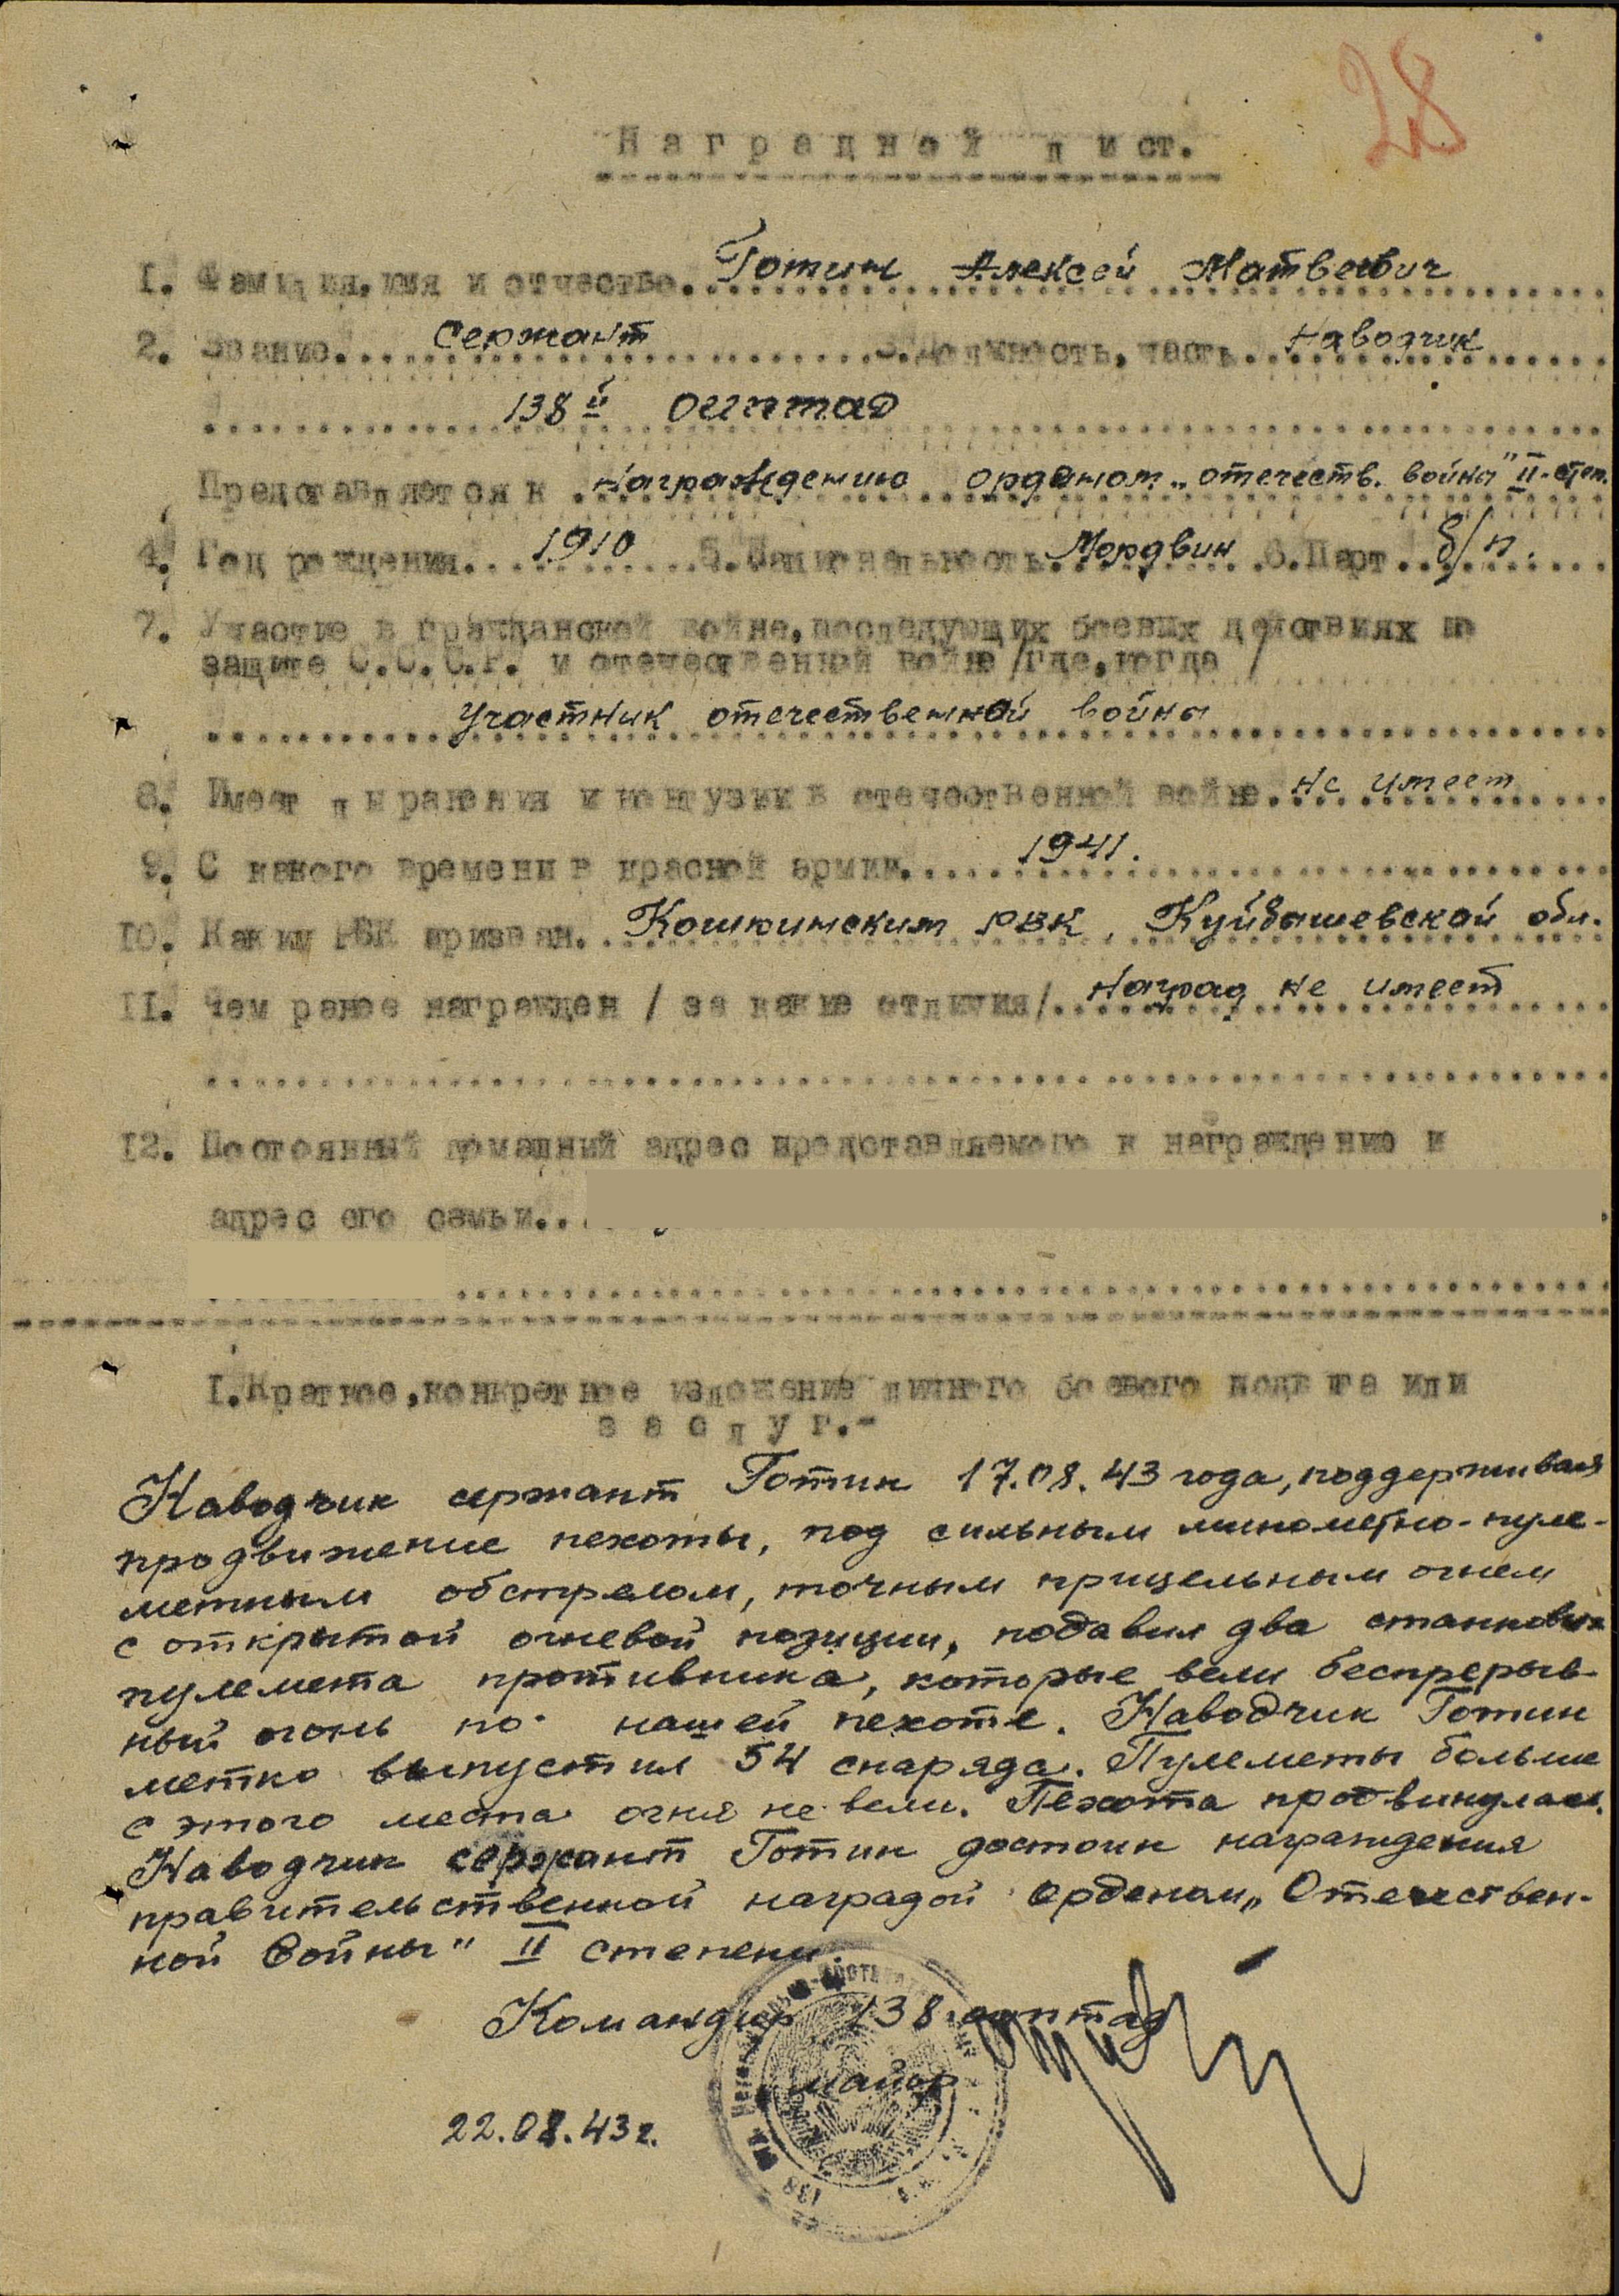 28
Наградной лист.
1. Фамилия, имя и отчество. Готин Алексей Матвеевич
2. Звание. Сержант 3. Должность, часть. Наводчик
138й оиптад
Представляется к награждению орденом „отечеств. война" II-степ.
4. Год рождения. 1910 5. Национальность Мордвин 6. Парт. б/п.
7. Участие в гражданской войне, последующих боевых действиях по
защите С.С.С.Р. и отечественной войне /где, когда/
Участник отечественной войны
8. Имеет ли ранения и контузии в отечественной войне. Не имеет
9. С какого времени в красной армии. 1941.
10. Каким РВК призван. Кошкинским РВК, Куйбышевской обл.
11. Чем ранее награжден /за какие отличия/. Наград не имеет
12. Постоянный домашний адрес представляемого к награждению и
адрес его семьи.
I. Краткое, конкретное изложение личного боевого подвига или
заслуг.-
Наводчик сержант Готин 17.08.43 года, поддерживая
продвижение пехоты, под сильным минометно-пуле-
метным обстрелом, точным прицельным огнем
с открытой огневой позиции, подавил два станковых
пулемета противника, которые вели беспрерыв-
ный огонь по нашей пехоте. Наводчик Готин
метко выпустил 54 снаряда. Пулеметы больше
с этого места огня не вели. Пехота продвинулась.
Наводчик сержант Готин достоин награждения
правительственной наградой орденом „Отечествен-
ной Войны" II степени.
Командир 138 оиптад
майор
22.08.43г.
138